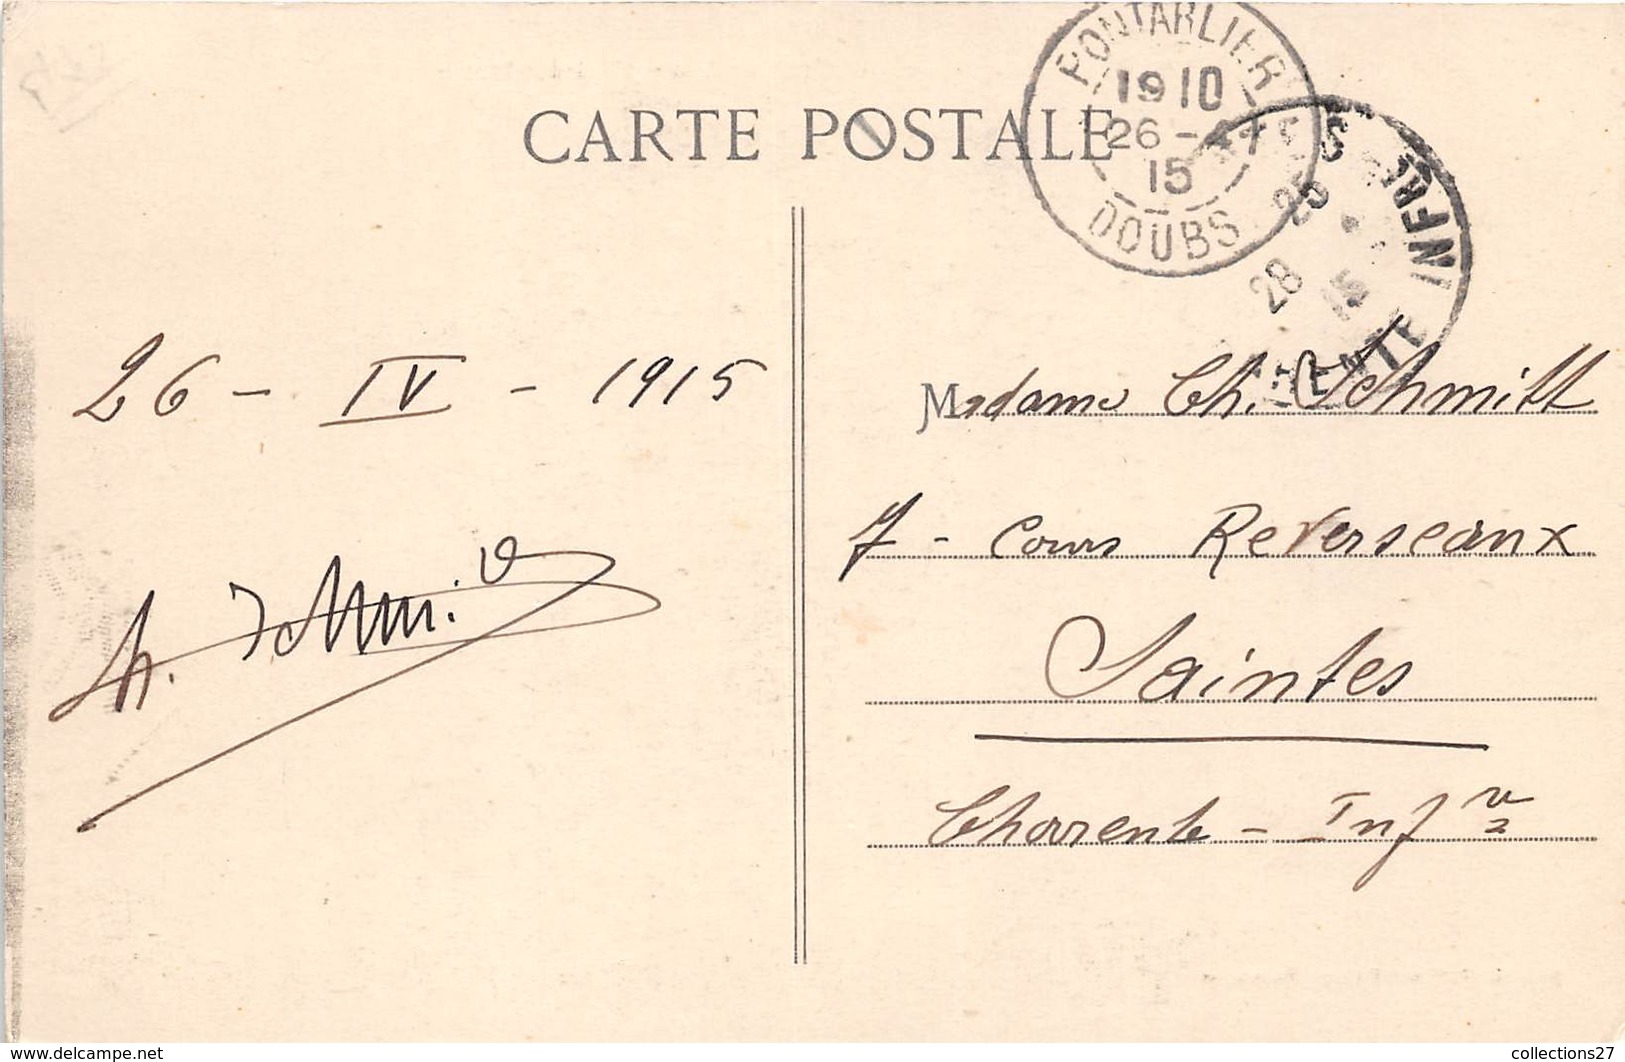 CARTE POSTALE
PONTARLIER
19 10
26 - 4
15
DOUBS
28
15
INFRE
26 - IV - 1915
Madame Ch. Schmitt
7 - Cours Reverseaux
Saintes
Charente - Infre
www.delcampe.net
collections27